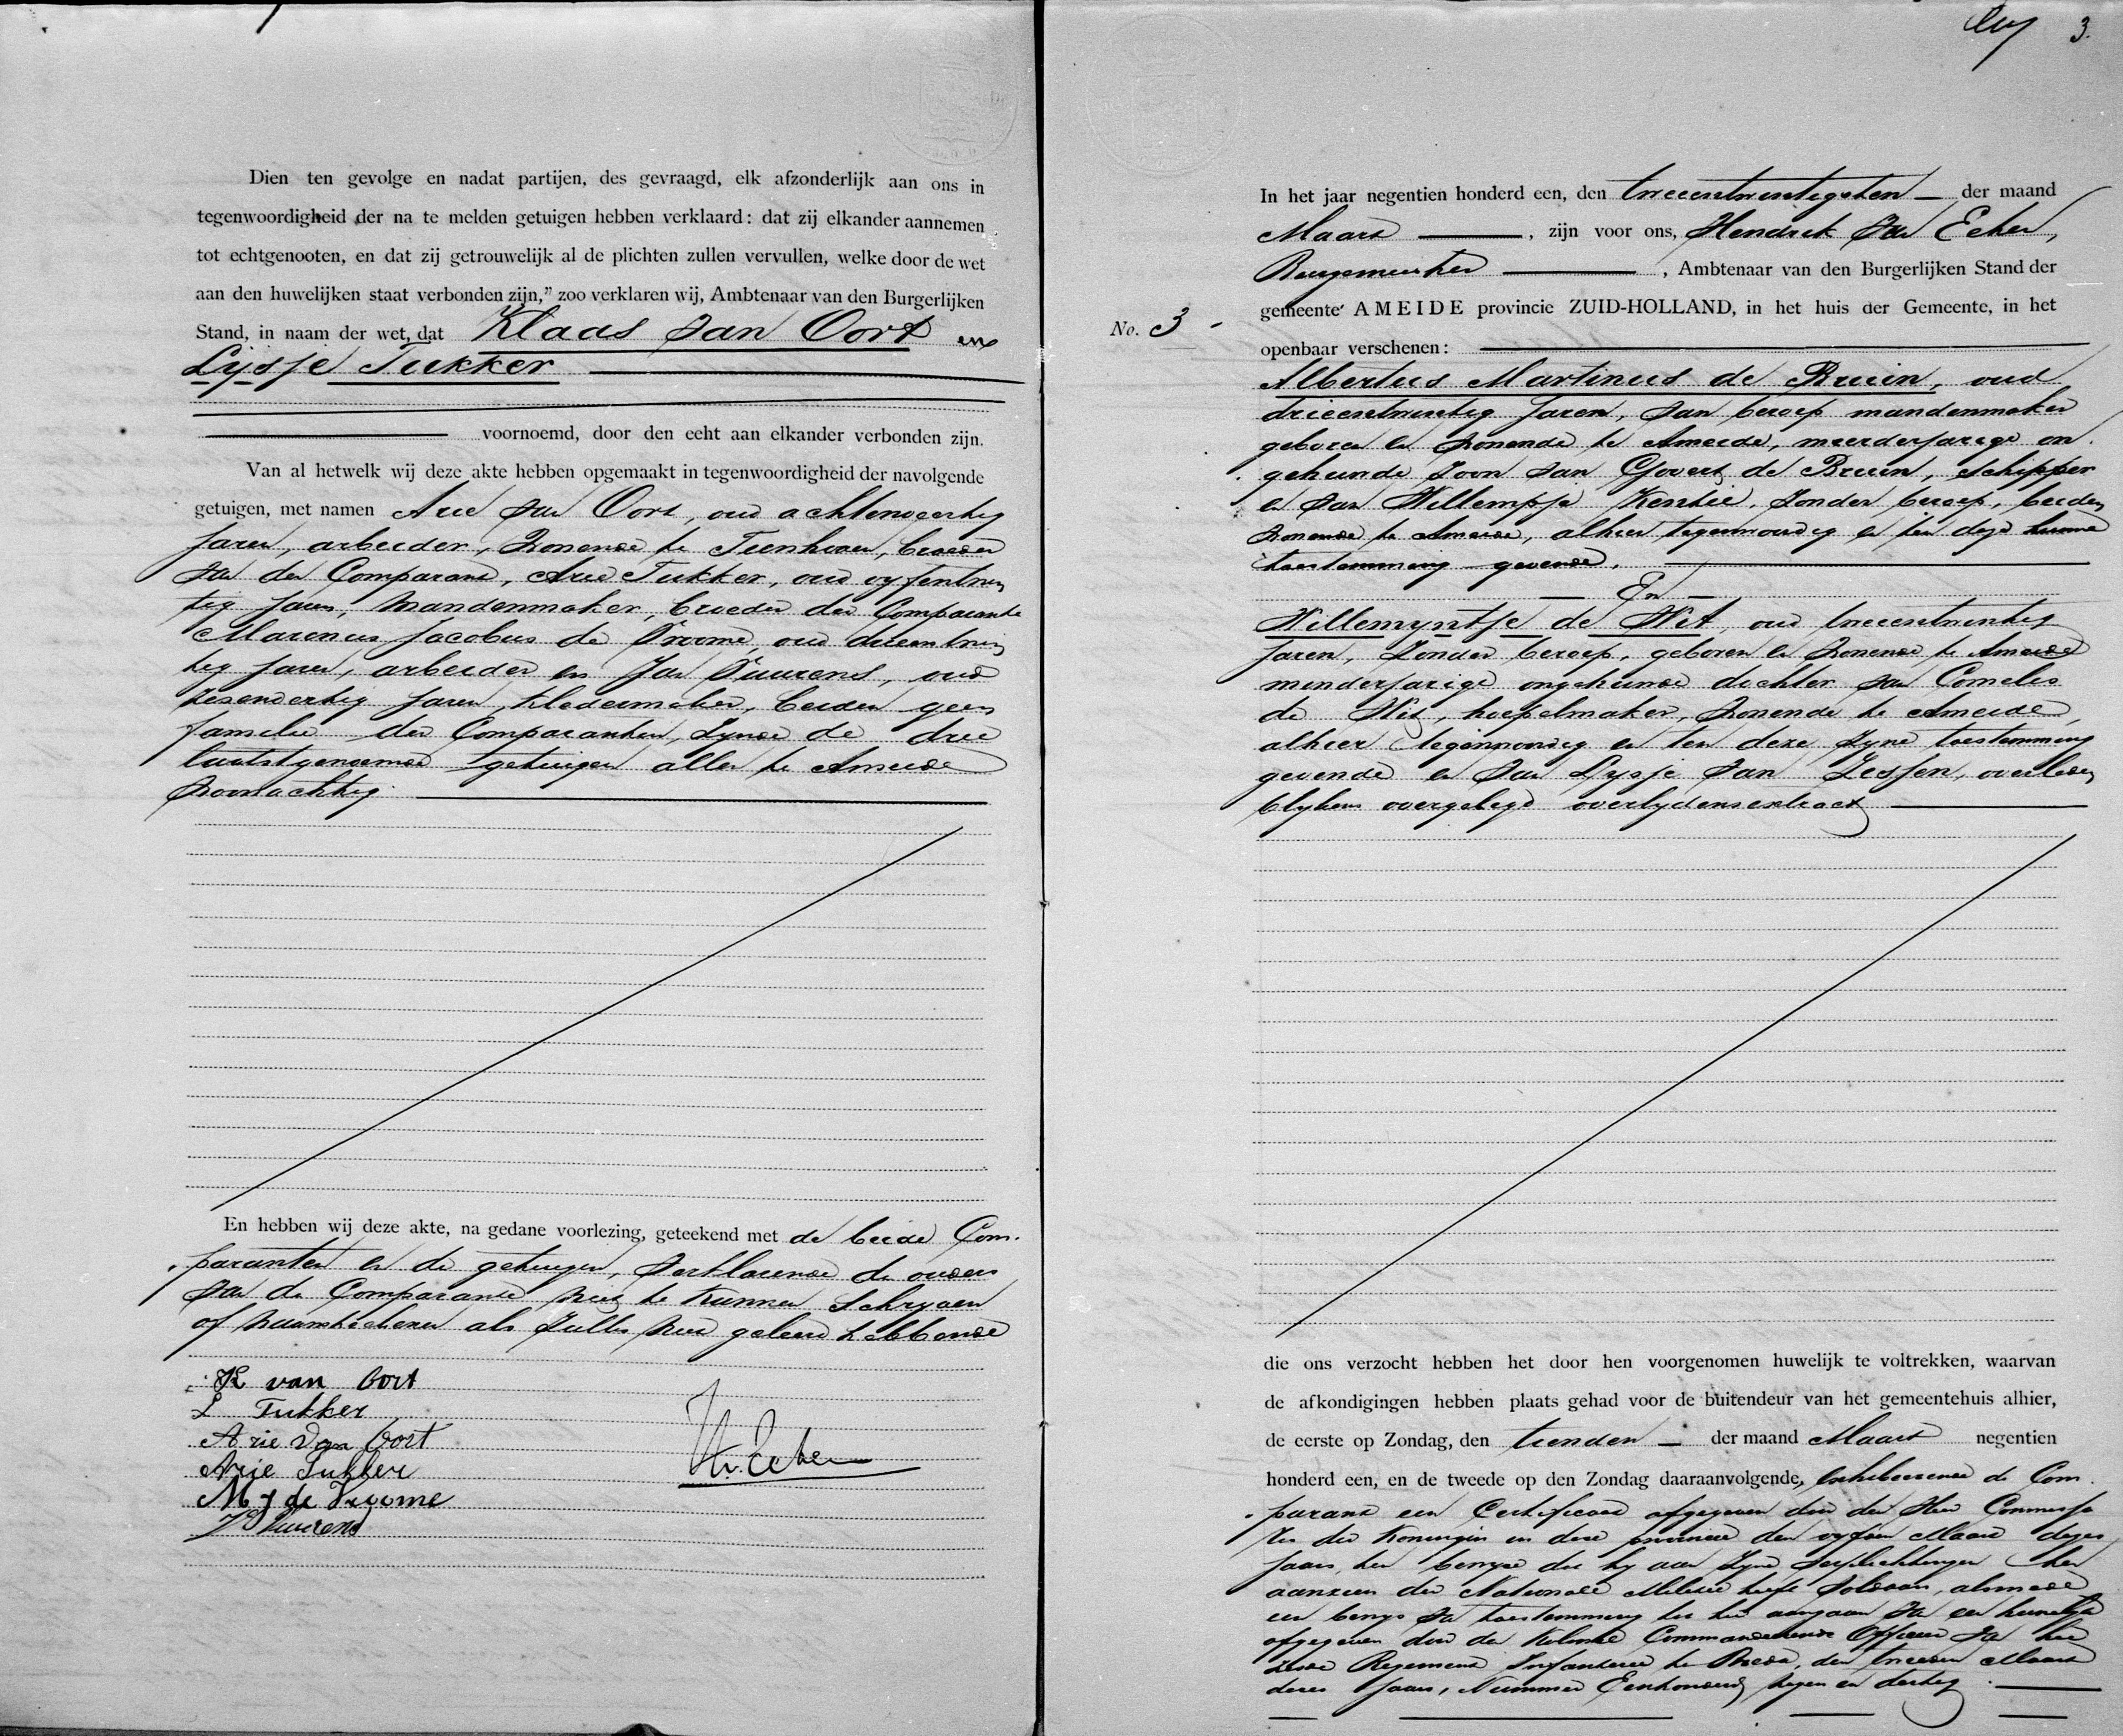 Dien ten gevolge en nadat partijen, des gevraagd, elk afzonderlijk aan ons in
tegenwoordigheid der na te melden getuigen hebben verklaard: dat zij elkander aannemen
tot echtgenooten, en dat zij getrouwelijk al de plichten zullen vervullen, welke door de wet
aan den huwelijken staat verbonden zijn,” zoo verklaren wij, Ambtenaar van den Burgerlijken
Stand, in naam der wet, dat Klaas van Oort en
Lijsje Tukker
voornoemd, door den echt aan elkander verbonden zijn.
Van al hetwelk wij deze akte hebben opgemaakt in tegenwoordigheid der navolgende
getuigen, met namen Arie van Oort, oud achtenveertig
jaren, arbeider, wonende te Tienhoven, broeder
van den Comparant, Arie Tukker, oud vyfentwin
tig jaren, mandenmaker, broeder der Comparante
Marinus Jacobus de Vroome, oud drieentwin
tig jaren, arbeider en Jan Vuurens, oud
zesendertig jaren, kledermaker, beiden geen
familie der Comparanten, zynde de drie
laatstgenoemde getuigen allen te Ameide
woonachtig.
En hebben wij deze akte, na gedane voorlezing, geteekend met de beide Com-
paranten en de getuigen, verklarende de ouders
van de Comparante niet te kunnen schryven
of naamteekenen als zulks niet geleerd hebbende
K van Oort
L Tukker
Arie van Oort
Arie Tukker
M J de Vroome
J Vuurens
3.
In het jaar negentien honderd een, den tweeentwintigsten der maand
Maart, zijn voor ons, Hendrik van Eeken,
Burgemeester, Ambtenaar van den Burgerlijken Stand der
gemeente AMEIDE provincie ZUID-HOLLAND, in het huis der Gemeente, in het
No. 3
openbaar verschenen:
Albertus Martinus de Bruin, oud
drieentwintig jaren, van beroep mandenmaker
geboren en wonende te Ameide, meerderjarige on
gehuwde zoon van Govert de Bruin, schipper
en van Willempje Kentie, zonder beroep, beiden
wonende te Ameide, alhier tegenwoordig en ten deze hunne
toestemming gevende.
En
Willemyntje de Wit, oud tweeentwintig
jaren, zonder beroep, geboren en wonende te Ameide
minderjarige ongehuwde dochter van Cornelis
de Wit, hoepelmaker, wonende te Ameide,
alhier tegenwoordig en ten deze zyne toestemming
gevende en van Lysje van Zessen, overleden
blykens overgelegd overlydensextract
die ons verzocht hebben het door hen voorgenomen huwelijk te voltrekken, waarvan
de afkondigingen hebben plaats gehad voor de buitendeur van het gemeentehuis alhier,
de eerste op Zondag, den tienden der maand Maart negentien
honderd een, en de tweede op den Zondag daaraanvolgende, de Com
parant een Certificaat afgegeven door den Heer Commissa
ris der Koningin in deze provincie den vyfden Maart dezes
jaars, ten bewyze dat hy aan zyne verplichtingen ten
aanzien der Nationale Militie heeft voldaan, alsmede
een bewys van toestemming tot het aangaan van een huwelyk
afgegeven door den Kolonel Commandeerende Officier van het
zesde Regiment Infanterie te Breda, den tweeden Maart
dezes jaars, Nummer Eenhonderd negen en dertig.